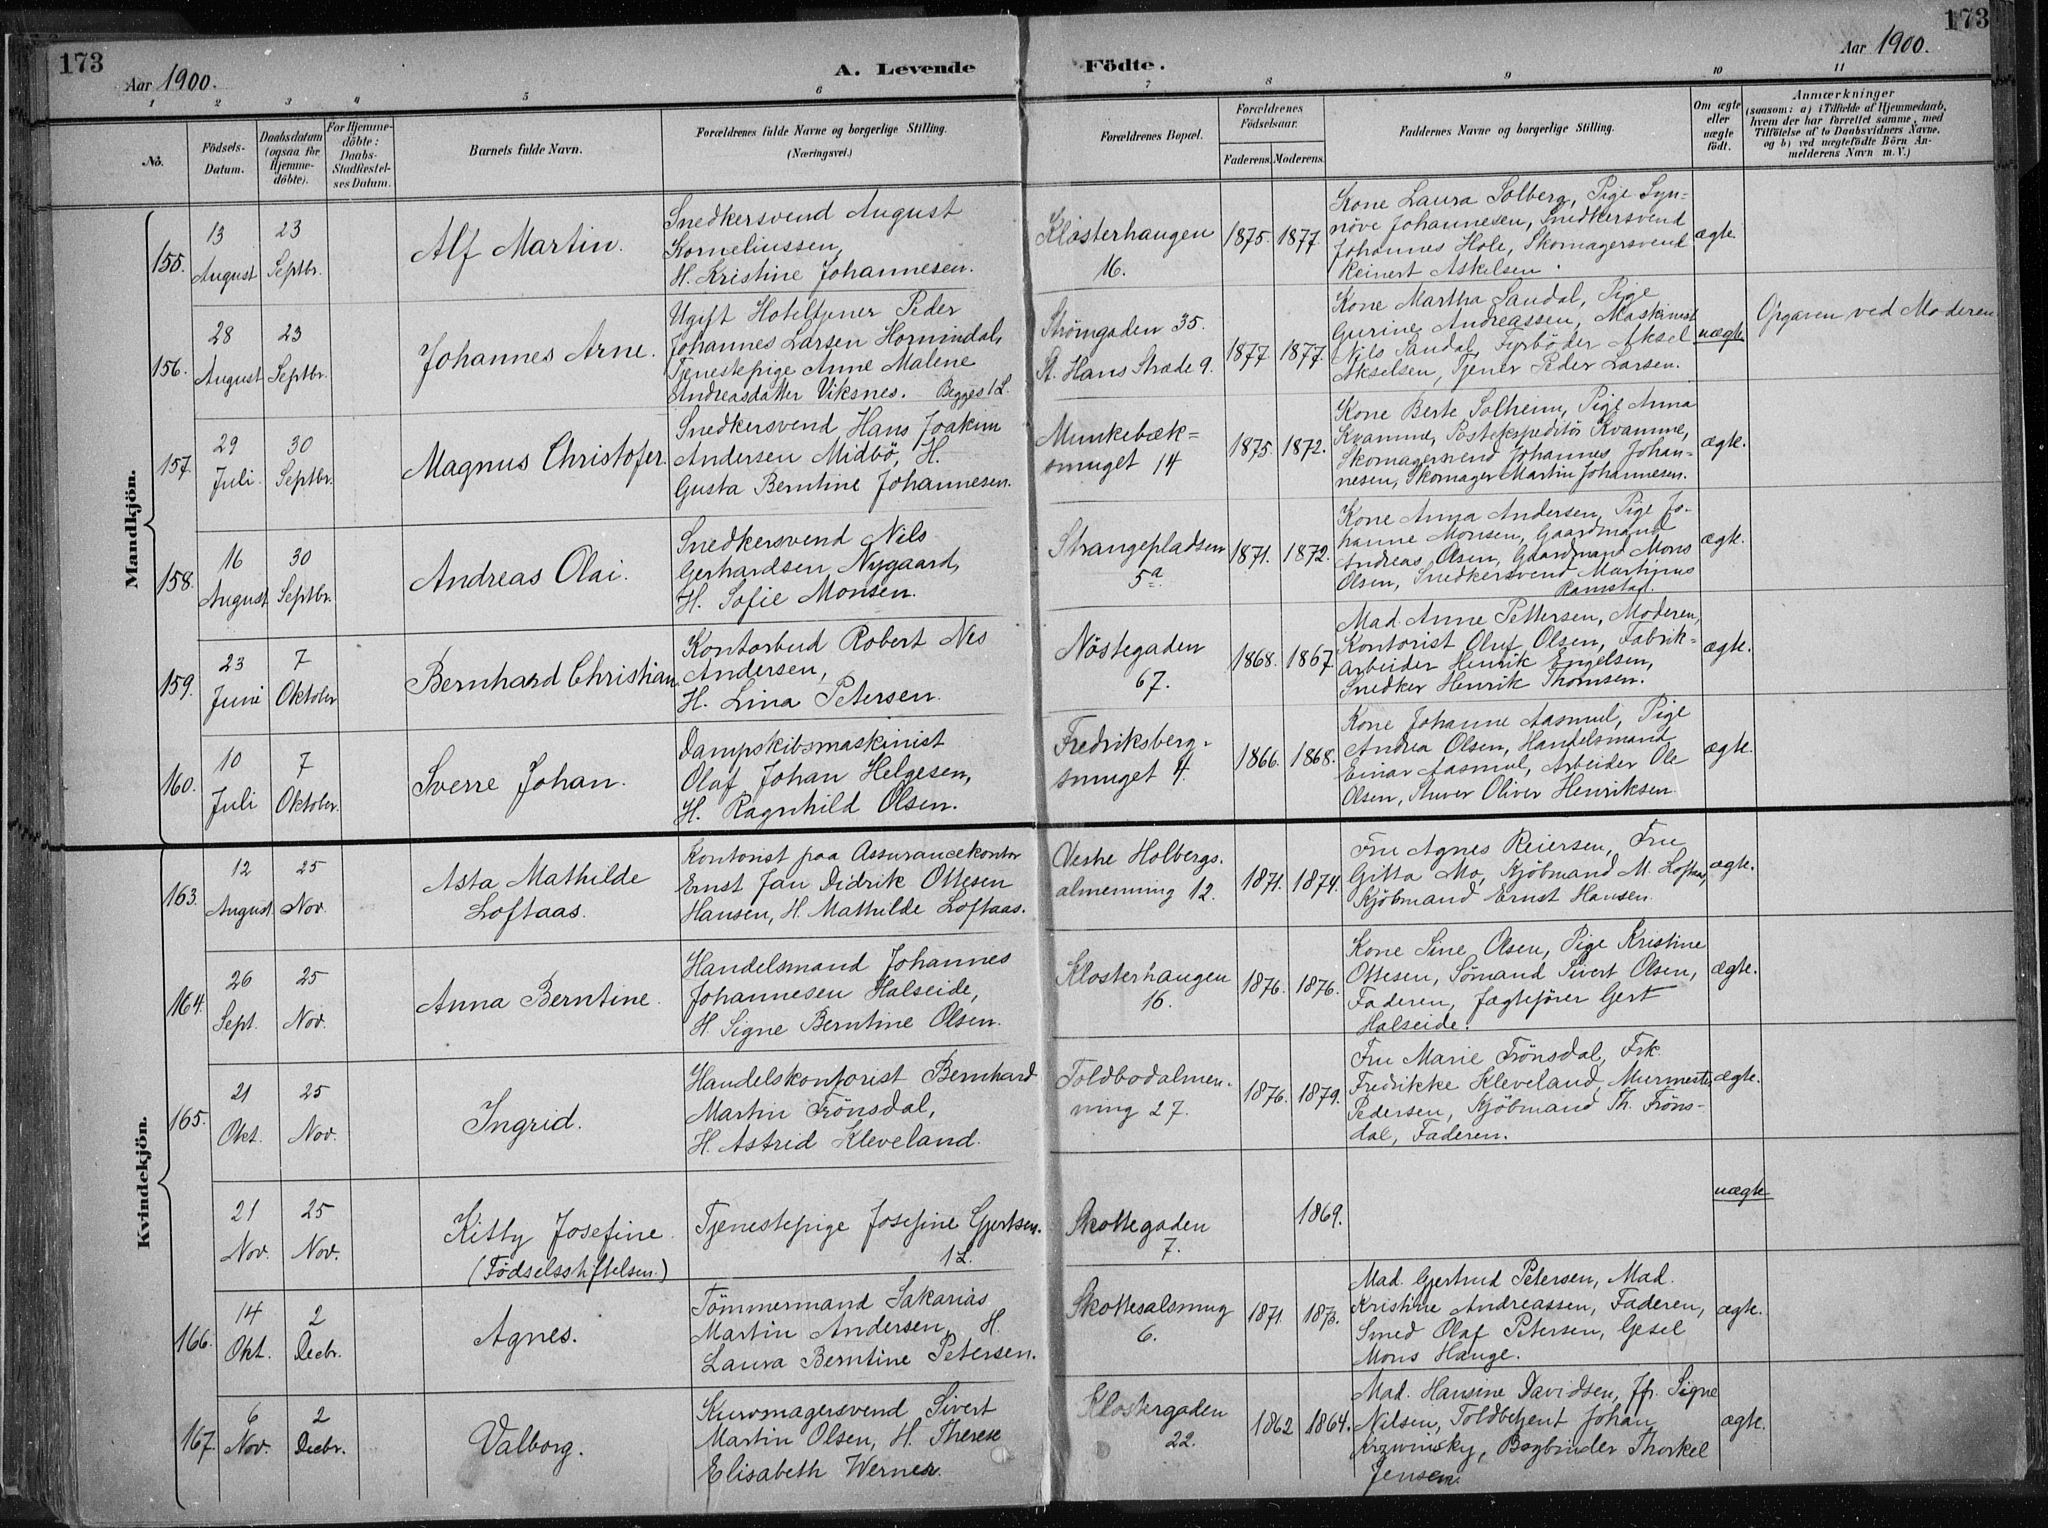 173
Aar 1900.
A. Levende Födte.
Aar 1900.
173
1 2 3 4 5 6 7 8 9 10 11
No.
Födsels-
Datum.
Daabsdatum
(ogsaa for
Hjemme-
döbte).
For Hjemme-
döbte:
Daabs-
Stadfæstel-
ses Datum.
Barnets fulde Navn.
Forældrenes fulde Navne og borgerlige Stilling.
(Næringsvei.)
Forældrenes Bopæl.
Forældrenes
Födselsaar.
Faderens. Moderens.
Faddernes Navne og borgerlige Stilling.
Om ægte
eller
uægte
födt.
Anmærkninger
(saasom: a) i Tilfælde af Hjemmedaab,
hvem der har forrettet samme, med
Tilföielse af to Daabsvidners Navne.
og b) ved uægtefödte Börn An-
melderens Navn m. V.)
Mandkjön.
155.
13
August
23
Septbr.
Alf Martin.
Snedkersvend August
Korneliussen,
H. Kristine Johannesen.
Klosterhaugen
16.
1875. 1877
Kone Laura Solberg, Pige Syn-
növe Johannesen, Snedkersvend
Johannes Hole, Skomagersvend
Reinert Askelsen.
ægte.
156.
28
August
23
Septbr.
Johannes Arne.
Ugift Hoteltjener Peder
Johannes Larsen Hornindal,
Tjenestepige Anne Malene
Andreasdatter Viksnes. Begges 1 L.
Strömgaden 35.
St. Hans Stræde 9.
1877 1877.
Kone Martha Sandal, Pige
Gurine Andreassen, Maskinist
Nils Sandal, Fyrböder Aksel
Akselsen, Tjener Peder Larsen.
uægte
Opgaven ved Moderen
157.
29
Juli.
30
Septbr.
Magnus Christofer.
Snedkersvend Hans Joakim
Andersen Midbö, H.
Gusta Berntine Johannesen.
Munkebæk=
smuget 14
1875. 1872.
Kone Berte Solheim, Pige Anna
Kvamme, Postekspeditör Kvamme,
Skomagersvend Johannes Johan-
nesen, Skomager Martin Johannesen.
ægte.
158.
16
August
30
Septbr.
Andreas Olai.
Snedkersvend Nils
Gerhardsen Nygaard,
H. Sofie Monsen.
Strangepladsen
5a.
1871. 1872.
Kone Anna Andersen, Pige Jo-
hanne Monsen, Gaardmand
Andreas Olsen, Gaardmand Mons
Olsen, Snedkersvend Martinus
Ramstad.
ægte.
159.
23
Juni
7
Oktober
Bernhard Christian.
Kontorbud Robert Nes
Andersen,
H. Lina Petersen.
Nöstegaden
67.
1868. 1867
Mad. Anne Pettersen, Moderen,
Kontorist Oluf Olsen, Fabrik=
arbeider Henrik Engelsen,
Snedker Henrik Thomsen.
ægte.
160.
10
Juli
7
Oktober.
Sverre Johan.
Dampskibsmaskinist
Olaf Johan Helgesen,
H. Ragnhild Olsen.
Fredriksberg-
smuget 4.
1866. 1868.
Kone Johanne Aasmul, Pige
Andrea Olsen, Handelsmand
Einar Aasmul, Arbeider Ole
Olsen, Stuver Oliver Henriksen.
ægte.
Kvindekjön.
163.
12
August
25
Nov.
Asta Mathilde
Loftaas.
Kontorist paa Assurancekontor
Ernst Jan Didrik Ottesen
Hansen, H. Mathilde Loftaas.
Vestre Holbergs-
almenning 12.
1871. 1874.
Fru Agnes Reiersen, Fru
Gitta Mo, Kjöbmand M. Loftaas,
Kjöbmand Ernst Hansen.
ægte.
164.
26
Sept.
25
Nov.
Anna Berntine.
Handelsmand Johannes
Johannesen Halseide,
H. Signe Berntine Olsen.
Klosterhaugen
16.
1876. 1876.
Kone Sine Olsen, Pige Kristine
Ottesen, Sömand Sivert Olsen,
Faderen, Jagtefører Gert
Halseide.
ægte.
165.
21
Okt.
25
Nov.
Ingrid.
Handelskontorist Bernhard
Martin Frönsdal,
H. Astrid Kleveland.
Toldbodalmen-
ning 27.
1876. 1879.
Fru Marie Frönsdal, Frk.
Fredrikke Kleveland, Murmester
Pedersen, Kjöbmand Th. Fröns-
dal, Faderen.
ægte.
21
Nov.
25
Nov.
Kitty Josefine.
(Födselsstiftelsen.)
Tjenestepige Josefine Gjertsen.
1 L.
Skottegaden
7.
1869.
uægte
166.
14
Okt.
2
Decbr.
Agnes.
Tömmermand Sakarias
Martin Andersen, H.
Laura Berntine Petersen.
Skottesalsmug
6.
1871. 1873.
Mad. Gjertrud Petersen, Mad.
Kristine Andreassen, Faderen,
Smed Olaf Petersen, Gesel
Mons Hauge.
ægte.
167.
6
Nov.
2
Decbr.
Valborg.
Kurvmagersvend Sivert
Martin Olsen, H. Therese
Elisabeth Werner.
Klostergaden
22.
1862 1864.
Mad. Hansine Davidsen, Jfr. Signe
Nilsen, Toldbetjent Johan
Krzwinsky, Bogbinder Thorkel
Jensen.
ægte.